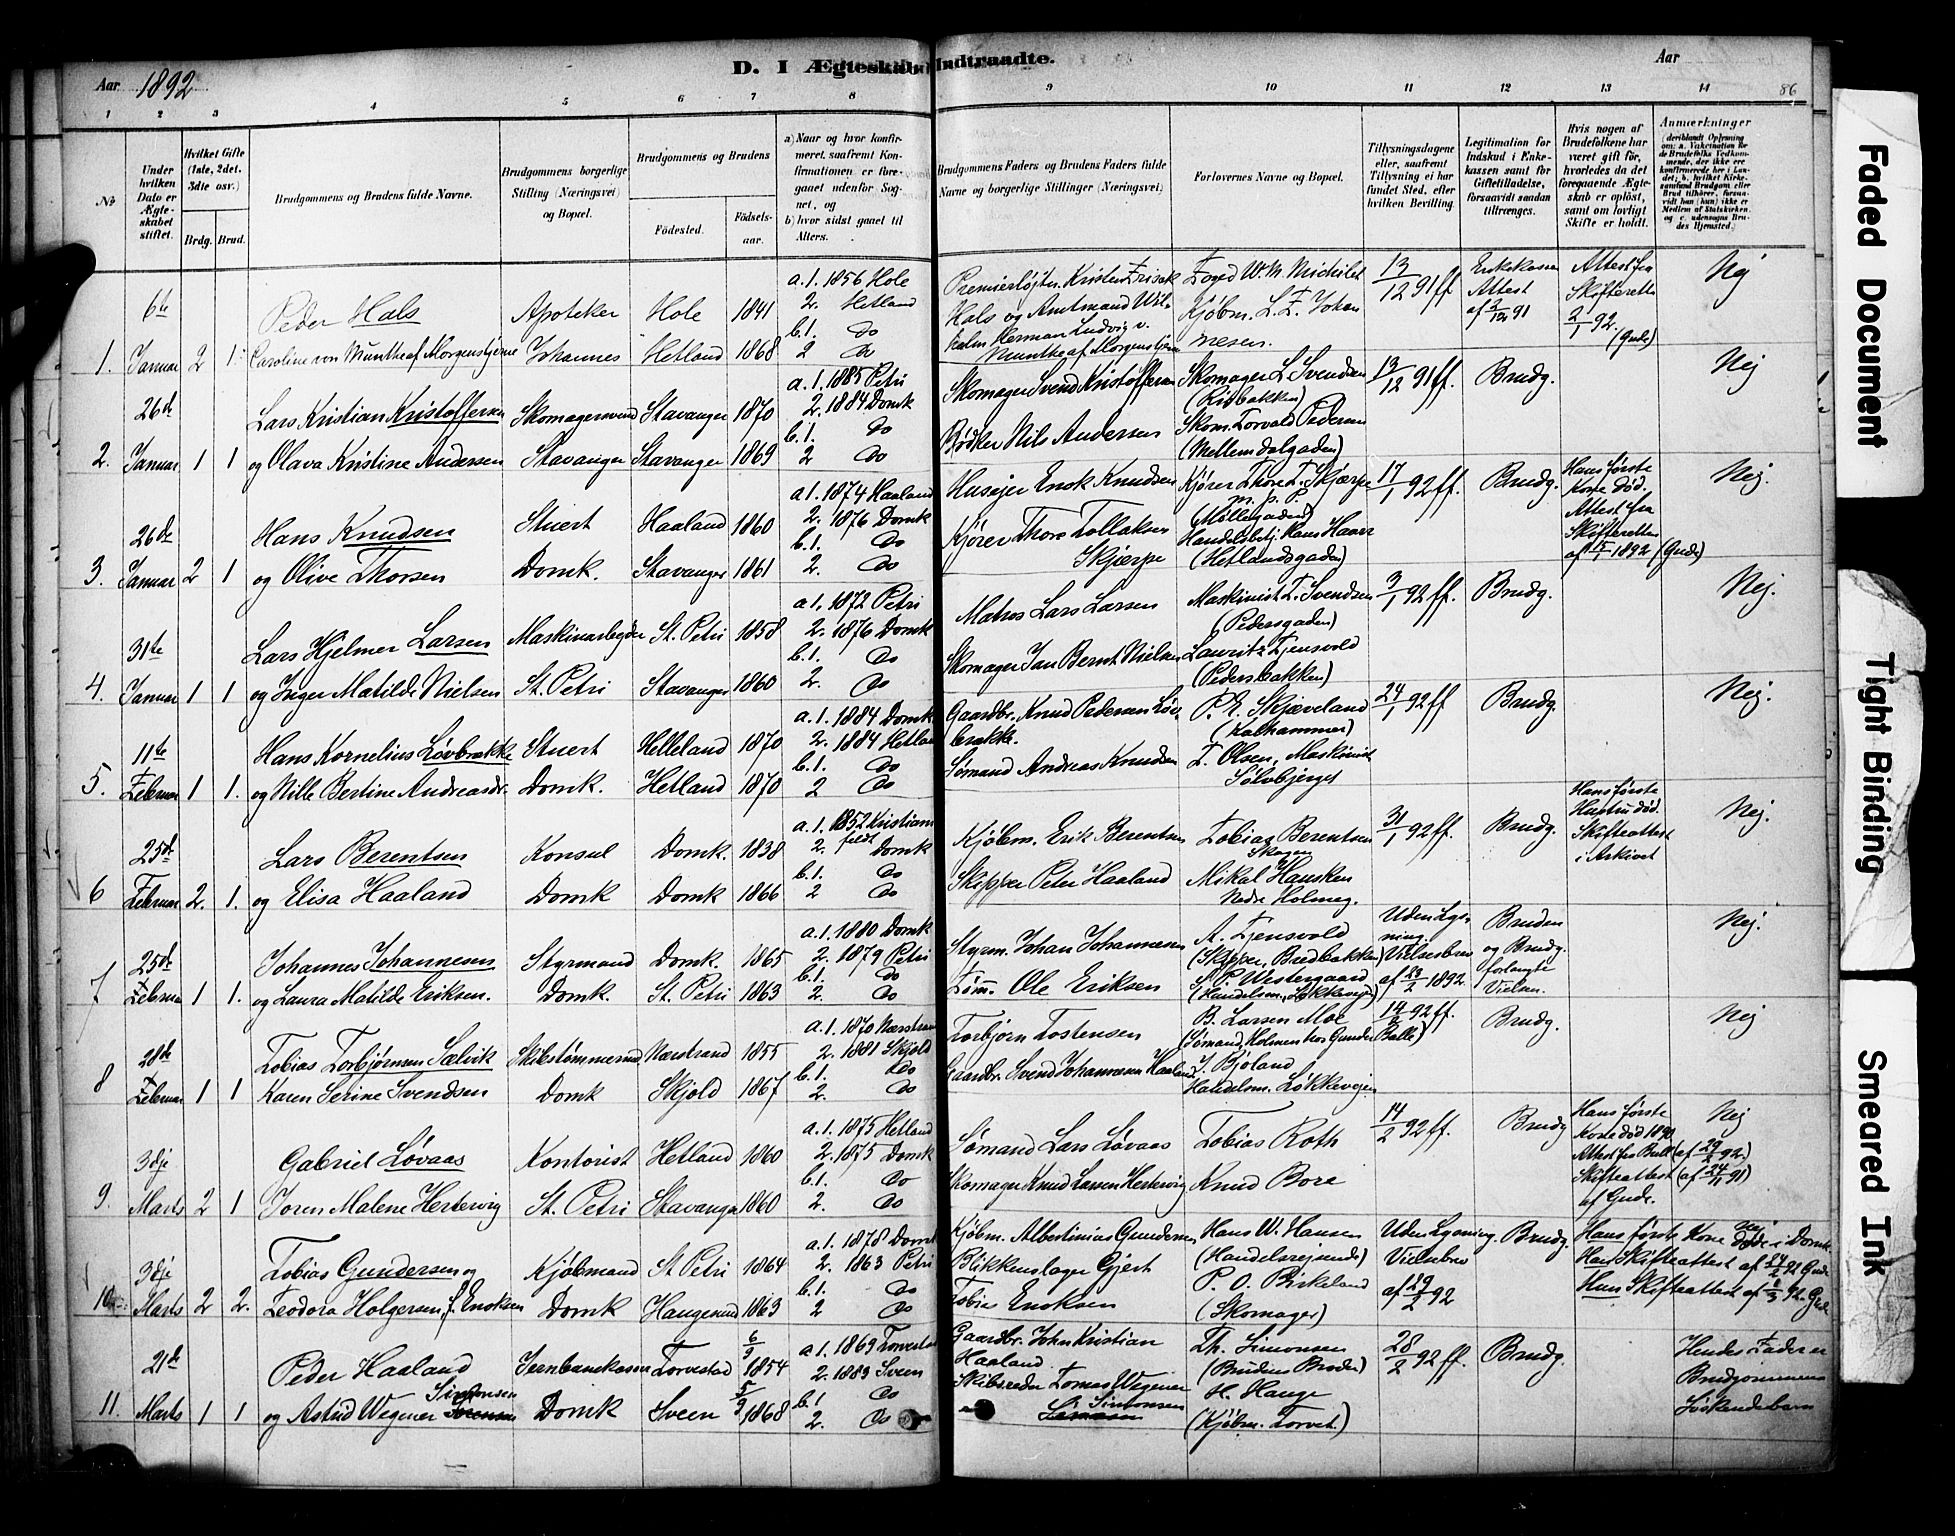 D. I Ægteskab Indtraadte.
Aar 1892
Aar
86
1 2 3 4 5 6 7 8 9 10 11 12 13 14
No
Under hvilken Dato er Ægteskabet stiftet.
Hvilket Gifte (1ste, 2det, 3die osv.)
Brdg. Brud.
Brudgommens og Brudens fulde Navne.
Brudgommens borgerlige Stilling (Næringsvei) og Bopæl.
Brudgommens og Brudens
Födested.
Födselsaar.
a) Naar og hvor konfirmeret, saafremt Konfirmationen er foregaaet udenför Sognet, og
b) hvor sidst gaaet til Alters.
Brudgommens Faders og Brudens Faders fulde Navne og borgerlige Stillinger (Næringsvei)
Forlovernes Navne og Bopæl.
Tillysningsdagene eller, saafremt Tillysning ei har fundet Sted, efter hvilken Bevilling.
Legitimation for Indskud i Enkekassen samt for Giftetilladelse, forsaavidt saadan tiltrænges.
Hvis nogen af Brudefolkene har været gift för, hvorledes da det foregaaende Ægteskab er oplöst, samt om lovligt Skifte er holdt.
Anmærkninger
1. 6te Januar 2 1
Peder Hals
Caroline von Munthe af Morgenstjerne
Apoteker Johannes
Hole 1841
Hetland 1868
a. 1. 1856 Hole
2. Hetland
b. 1. Do
2 Do
Premierløjtn. Kristen Frisak Hals og Amtmand Wilhelm Herman Ludvig v. Munthe af Morgenstjerne
Foged W. M. Michelet
Kjøbm. L. F. Johannesen.
13/12 91 ff
Enkekassen Attest af 3/12 91
Attest fra Skifteretten 2/1 92. (Gude)
Nej
2. 26de Januar 1 1
Lars Kristian Kristoffersen
og Olava Kristine Andersen
Skomagersvend Stavanger
Stavanger 1870
Stavanger 1869
a. 1. 1885 Petri
2. 1884 Domk
b. 1. Do
2 Do
Skomager Svend Kristoffersen
Bødker Nils Andersen
Skomager L. Svendsen (Risbakken)
Skom. Torvald Pedersen (Mellemdalgaden)
13/12 91 ff.
Brudg.
Nej
3. 26de Januar 2 1
Hans Knudsen
og Olive Thorsen
Stuert Domk.
Haaland 1860
Stavanger 1861
a 1. 1874 Haaland
2. 1876 Domk
b. 1. Do
2. Do
Husejer Enok Knudsen
Kjører Thore Tollaksen Skjærpe
Kjører Thore T. Skjærpe m. p. P. (Møllegaden)
Handelsbetj. Hans Haarr (Hetlandsgaden)
17/1 92 ff.
Brudg.
Hans første Kone død. Attest fra Skifteretten af 15/1 1892 (Gude)
Nej.
4. 31te Januar 1 1
Lars Hjelmer Larsen
og Inger Matilde Nielsen
Maskinarbejder St. Petri
St. Petri 1858
Stavanger 1860
a 1. 1872 Petri
2. 1876 Domk
b. 1. Do
2. Do
Matros Lars Larsen
Skomager Jan Bernt Nielsen
Maskinist T. Svendsen (Pedersgaden)
Lauritz Tjensvold (Pedersbakken)
3/1 92 ff.
Brudg.
Nej.
5. 11te Februar 1 1.
Hans Kornelius Løvbrække
og Nille Bertine Andreasdr.
Stuert Domk.
Helleland 1870
Hetland 1870
a. 1. 1884 Domk
2. 1884 Hetland
b. 1. Do
2 Do
Gaardbr. Knud Pedersen Løvbrække.
Sømand Andreas Knudsen
P. E. Skjæveland (Kalhammer)
T. Olsen, Maskinist Sølvbjerget
24/1 92 ff
Brudg.
Nej.
6 25de Februar 2. 1.
Lars Berentsen
og Elisa Haaland
Konsul Domk
Domk. 1838
Domk 1866
a. 1. 1852 Kristiansfeldt
2. Domk
b. 1. Do
2 Do
Kjøbm. Erik Berentsen
Skipper Peter Haaland
Tobias Berentsen Skagen
Mikal Hansken Nedre Holmeg.
31/1 92 ff.
Brudg.
Hans første Hustru død. Skifteattest i Arkivet
Nej.
7 25de Februar 1 1.
Johannes Johannesen
og Laura Matilde Eriksen.
Styrmand Domk.
Domk. 1865
St. Petri 1863
a. 1. 1880 Domk
2. 1879 Petri
b. 1. Do
2. Do
Styrm. Johan Johannesen
Tøm. Ole Eriksen
A. Tjensvold (Skipper, Bredbakken)
S. P. Westergaard (Handelsm., Løkkevejen)
Uden Lysning. Vielsesbrev af 23/2 1892.
Bruden og Brudg. forlangte Vielsen.
Nej.
8 28de Februar 1 1
Tobias Torbjørnsen Sælvik
Karen Serine Svendsen
Skibstømmermand Domk
Nærstrand 1855
Skjold 1867
a. 1. 1870 Nærstrand
2. 1881 Skjold
b. 1. Do
2. Do
Torbjørn Tostensen
Gaardbr. Svend Johannesen Haaland
B. Larsen Moe (Sømand, Holmen hos Gunder Balle)
J. Bjoland Handelsm. Løkkevejen
14/2 92 ff.
Brudg.
Nej
9. 3dje Marts 2 1
Gabriel Løvaas
Joren Malene Hertervig
Kontorist St. Petri
Hetland 1860
Stavanger 1860
a. 1. 1875 Hetland
2. 1875 Domk
b. 1. Do
2. Do
Sømand Lars Løvaas
Skomager Knud Larsen Hertervig
Tobias Roth
Knud Bore
14/2 92 ff.
Brudg
Hans første Kone død 1890 Attest fra Bull (af 29/2 92) Skifteattest (af 24/11 91) af Gude.
Nej
10. 3dje Marts 2 2.
Tobias Gundersen og
Teodora Holgersen f. Enoksen
Kjøbmand Domk
St Petri 1864
Haugesund 1863
a. 1. 1878 Domk
2. 1863 Petri
b. 1. Do
2 Do
Kjøbm. Albertinius Gundersen
Blikkenslager Gjert Tobias Enoksen
Hans W. Hansen (Handelsrejsende)
P. O. Birkeland (Skomager)
Uden Lysning. Vielsesbrev af 29/2 92
Brudg.
Nej
Hans første Kone døde i Domk.
Hans Skifteattest af 24/2 92 Gude
Hans Skifteattest af 1/3 92. Gude
11. 21de Marts 1 1
Peder Haaland
og Astrid Wegener Simonsen
Jernbanekasserer Domk
Torvestad 6/9 1854
Sveen 5/9 1868
a 1. 1869 Torvestad
2. 1883 Sveen
b. 1 Do
2. Do
Gaardbr. John Kristian Haaland
Skibsreder Tomas Wegener Simonsen
Th. Simonsen (Brudens Broder)
H. Hauge (Kjøbm. Torvet.)
28/2 92 ff.
Brudg.
Hendes Fader er Brudgommens Søskendebarn
Faded Document
Tight Binding
Smeared Ink